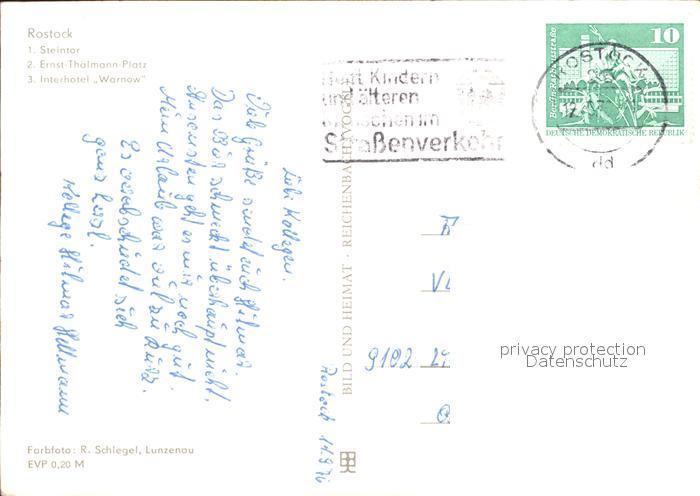 Rostock
1. Steintor
2. Ernst-Thälmann-Platz
3. Interhotel „Warnow"
Helft Kindern
und älteren
Menschen im
Straßenverkehr
ROSTOCK
dd
10
Berlin, Rathausstraße
DEUTSCHE DEMOKRATISCHE REPUBLIK
BILD UND HEIMAT · REICHENBACH (VOGTL)
Rostock 11.9.76
Liebe Kollegen.
Viele Grüße sendet euch Hilmar.
Das Bier schmeckt überhaupt nicht.
Ansonsten geht es mir noch gut.
Mein Urlaub war viel zu kurz.
Es verabschiedet sich
ganz herzl.
Kollege Hilmar Hellmann
9102
privacy protection
Datenschutz
Farbfoto: R. Schlegel, Lunzenau
EVP 0,20 M